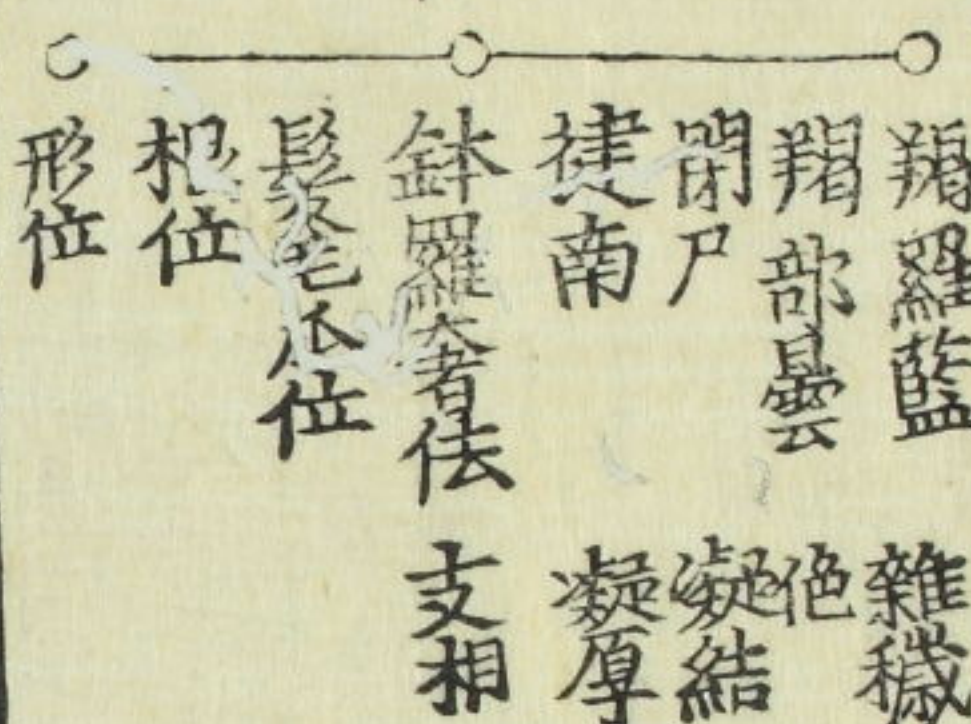 羯羅藍 雜穢
羯部曇 皰
閉尸 凝結
揵南 凝厚
鉢羅奢佉 支相
髮毛爪位
根位
形位